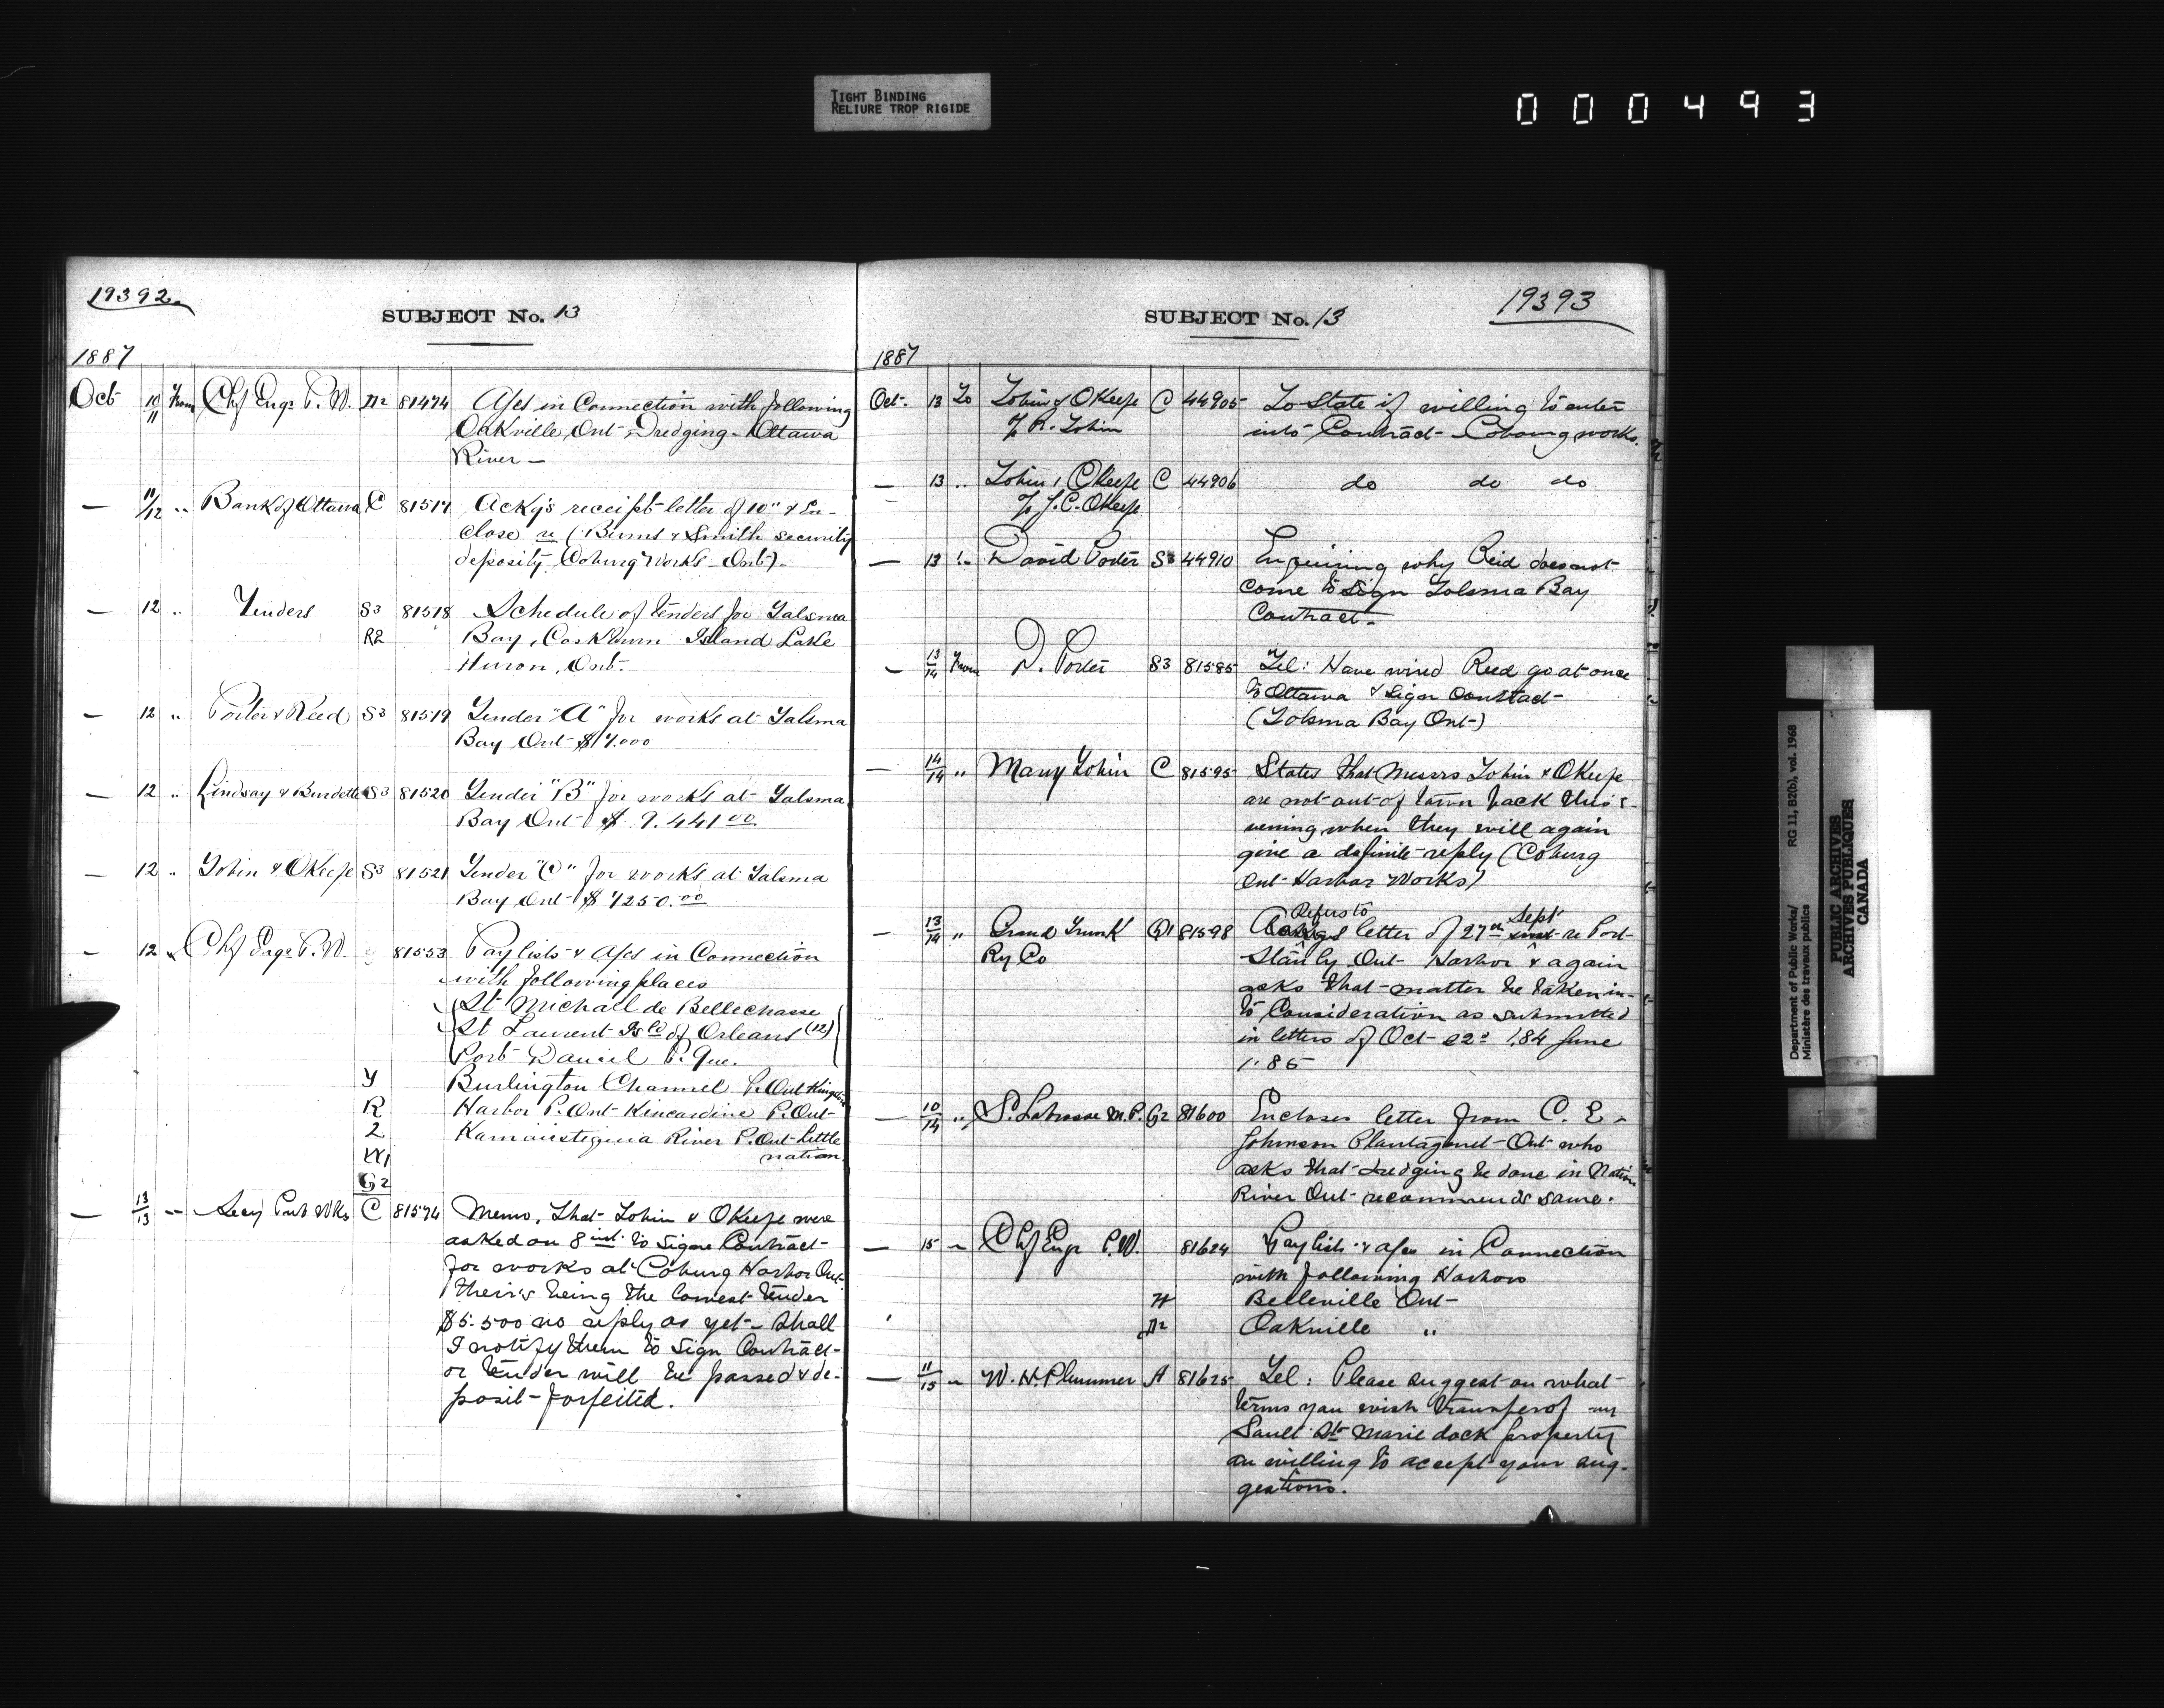 TIGHT BINDING
RELIURE TROP RIGIDE
000493
19392
SUBJECT No. 13
1887
Oct 10/11 From Chf Engr P. W. D2 81474 A/cs in Connection with following
Oakville Ont, Dredging - Ottawa
River -
— 11/12 " Bank of Ottawa C 81517 Ackgs receipt letter of 10" & En-
close re (Burns & Smith security
deposits Coburg Works - Ont).
— 12 " Tenders S3 81518 Schedule of tenders for Talsma
R2 Bay, Island Lake
Huron, Ont.
— 12 " Porter & Reed S3 81519 Tender "A" for works at Talsma
Bay Ont $17.000
— 12 " Lindsay & Burdette S3 81520 Tender "B" for works at Talsma
Bay Ont $ 9.441 00
— 12 " Tobin & OKeefe S3 81521 Tender "C" for works at Talsma
Bay Ont $ 7250.00
— 12 " Chf Engr P. W. 81553 Paylists & A/cs in Connection
with following places
St Michael de Bellechasse
St Laurent Isld of Orleans (12)
Port Daniel P. Que.
Y Burlington Channel P. Ont Kingston
R Harbor P. Ont Kincardine P. Ont
2 Kaministiquia River P. Ont Little
nation
G2
— 13/13 " Secy Pub Wks C 81574 Memo. That Tobin & OKeefe were
asked on 8 inst. to sign Contract
for works at Coburg Harbor Ont
theirs being the lowest tender
$5.500 no reply as yet - Shall
I notify them to sign Contract
or tender will be passed & de-
posit forfeited.
19393
SUBJECT No. 13
1887
Oct. 13 To Tobin & OKeefe C 44905 To State if willing to enter
p R. Tobin into Contract - Cobourg works.
— 13 " Tobin & OKeefe C 44906 do do do
p J. C. OKeefe
— 13 " David Porter S3 44910 Enquiring why Reid does not
come to sign Tolsma Bay
Contract.
— 13/14 From D. Porter S3 81585 Tel: Have wired Reed go at once
to Ottawa & sign Contract
(Tolsma Bay Ont)
— 14/14 " Mary Tobin C 81595 States that Messrs Tobin & OKeefe
are not out of town back this e-
vening when they will again
give a definite reply (Coburg
Ont Harbor Works)
Refers to Sept
— 13/14 " Grand Trunk Q1 81598 Ackgs letter of 27th inst re Port
Ry Co Stanly Ont Harbor & again
asks that matter be taken in-
to Consideration as submitted
in letters of Oct 22d 1,84 June
1.85
— 10/14 " S. Labrosse M.P. G2 81600 Encloses letter from C. E.
Johnson Plantagenet Ont who
asks that dredging be done in Nation
River Ont recommends same.
— 15 " Chf Engr P.W. 81624 Paylists & a/cs in Connection
with following Harbors
H Belleville Ont
D2 Oakville "
— 11/15 " W. H. Plummer A 81625 Tel: Please suggest on what
terms you wish transfer of my
Sault Ste Marie dock property
am willing to accept your sug-
gestions.
Department of Public Works/
Ministère des travaux publics
RG 11, B2(b), vol. 1968
PUBLIC ARCHIVES
ARCHIVES PUBLIQUES
CANADA